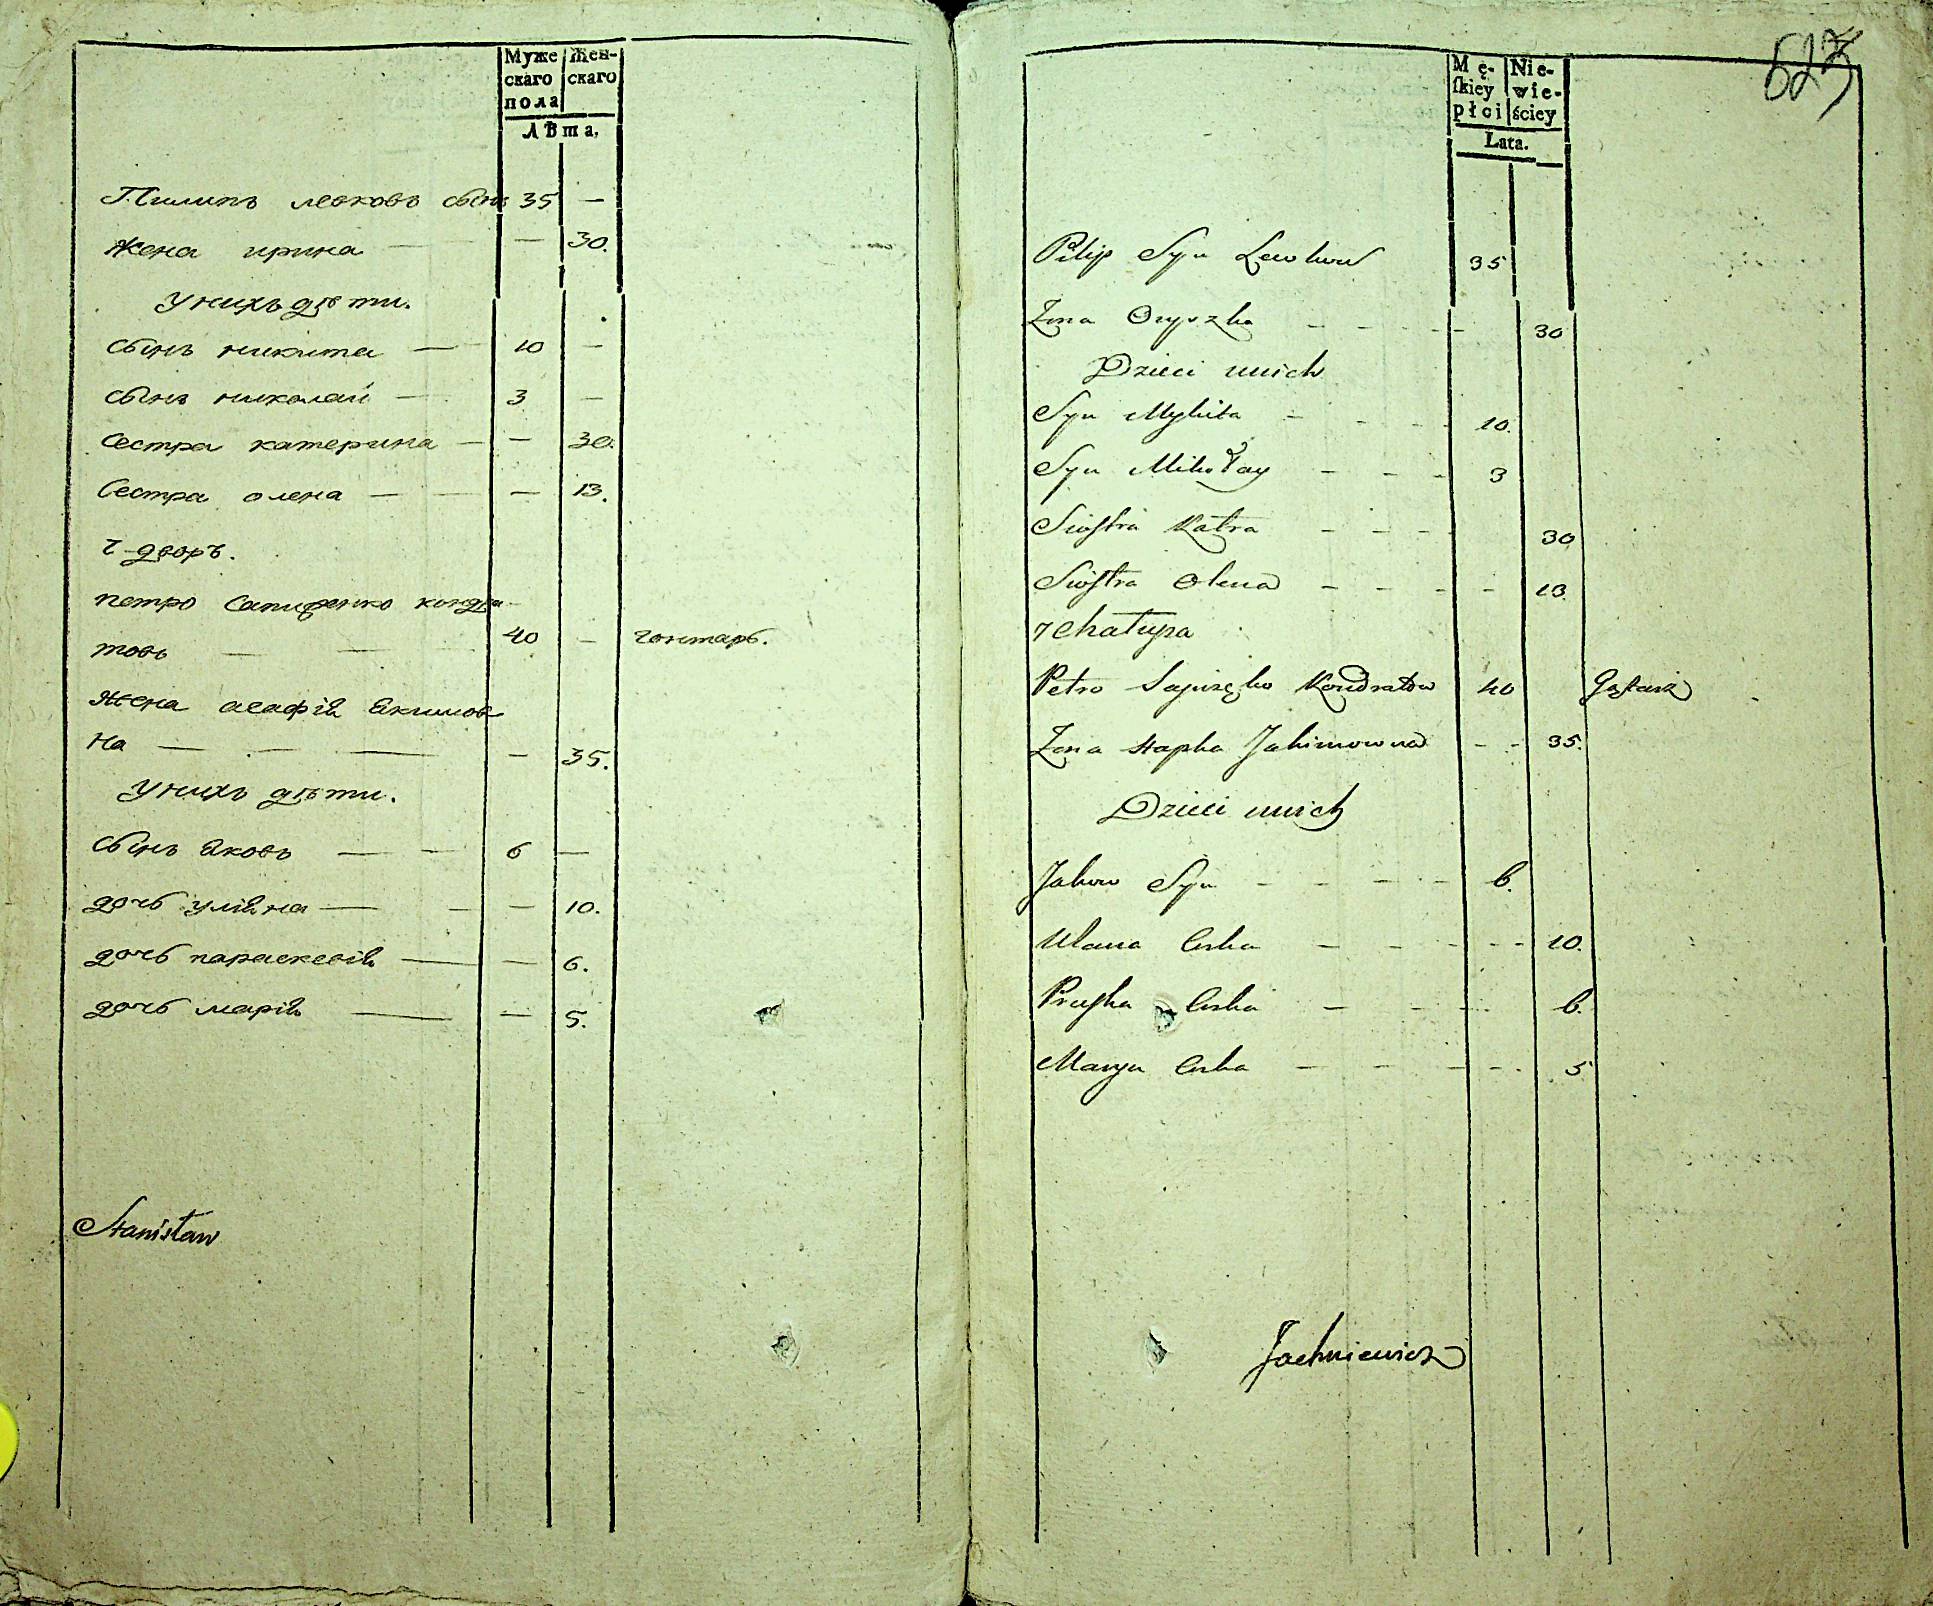 Муже Жен-
скаго скаго
пола
ЛѢта,
Пилипъ левковъ сынъ 35 —
жена ирина — — 30.
У нихъ дѣти.
сынъ никита — 10 —
сынъ николай — 3 —
сестра катерина — — 30.
Сестра олена — — — 13.
7-дворъ.
петро Сапиженко кондра-
товъ — — 40 — гонтарь.
жена агафія Якимов
на — — — — 35.
У нихъ дѣти.
сынъ Яковъ — — 6 —
дочь уліяна — — — 10.
дочь параскевія — — 6.
дочь марія — — 5.
Stanisław
527
Mę- Nie-
ſkiey wie-
płci ściey
Lata.
Pilip Syn Lewkow 35
Zona Oryszka - - - - 30
Dzieci unich
Syn Mykita - - - - 10.
Syn Mikołay - - - 3
Siostra Katra - - - 30
Siostra Olena - - - - 13.
7 Chałupa
Petro Sapizęko Kondratow 40 Gątarz
Zona Hapka Jakimowna - - 35.
Dzieci unich
Jakow Syn - - - - 6.
Ulana Curka - - - - - 10.
Pruska Curka - - - - 6.
Marya Curka - - - - - 5
Jachniewicz